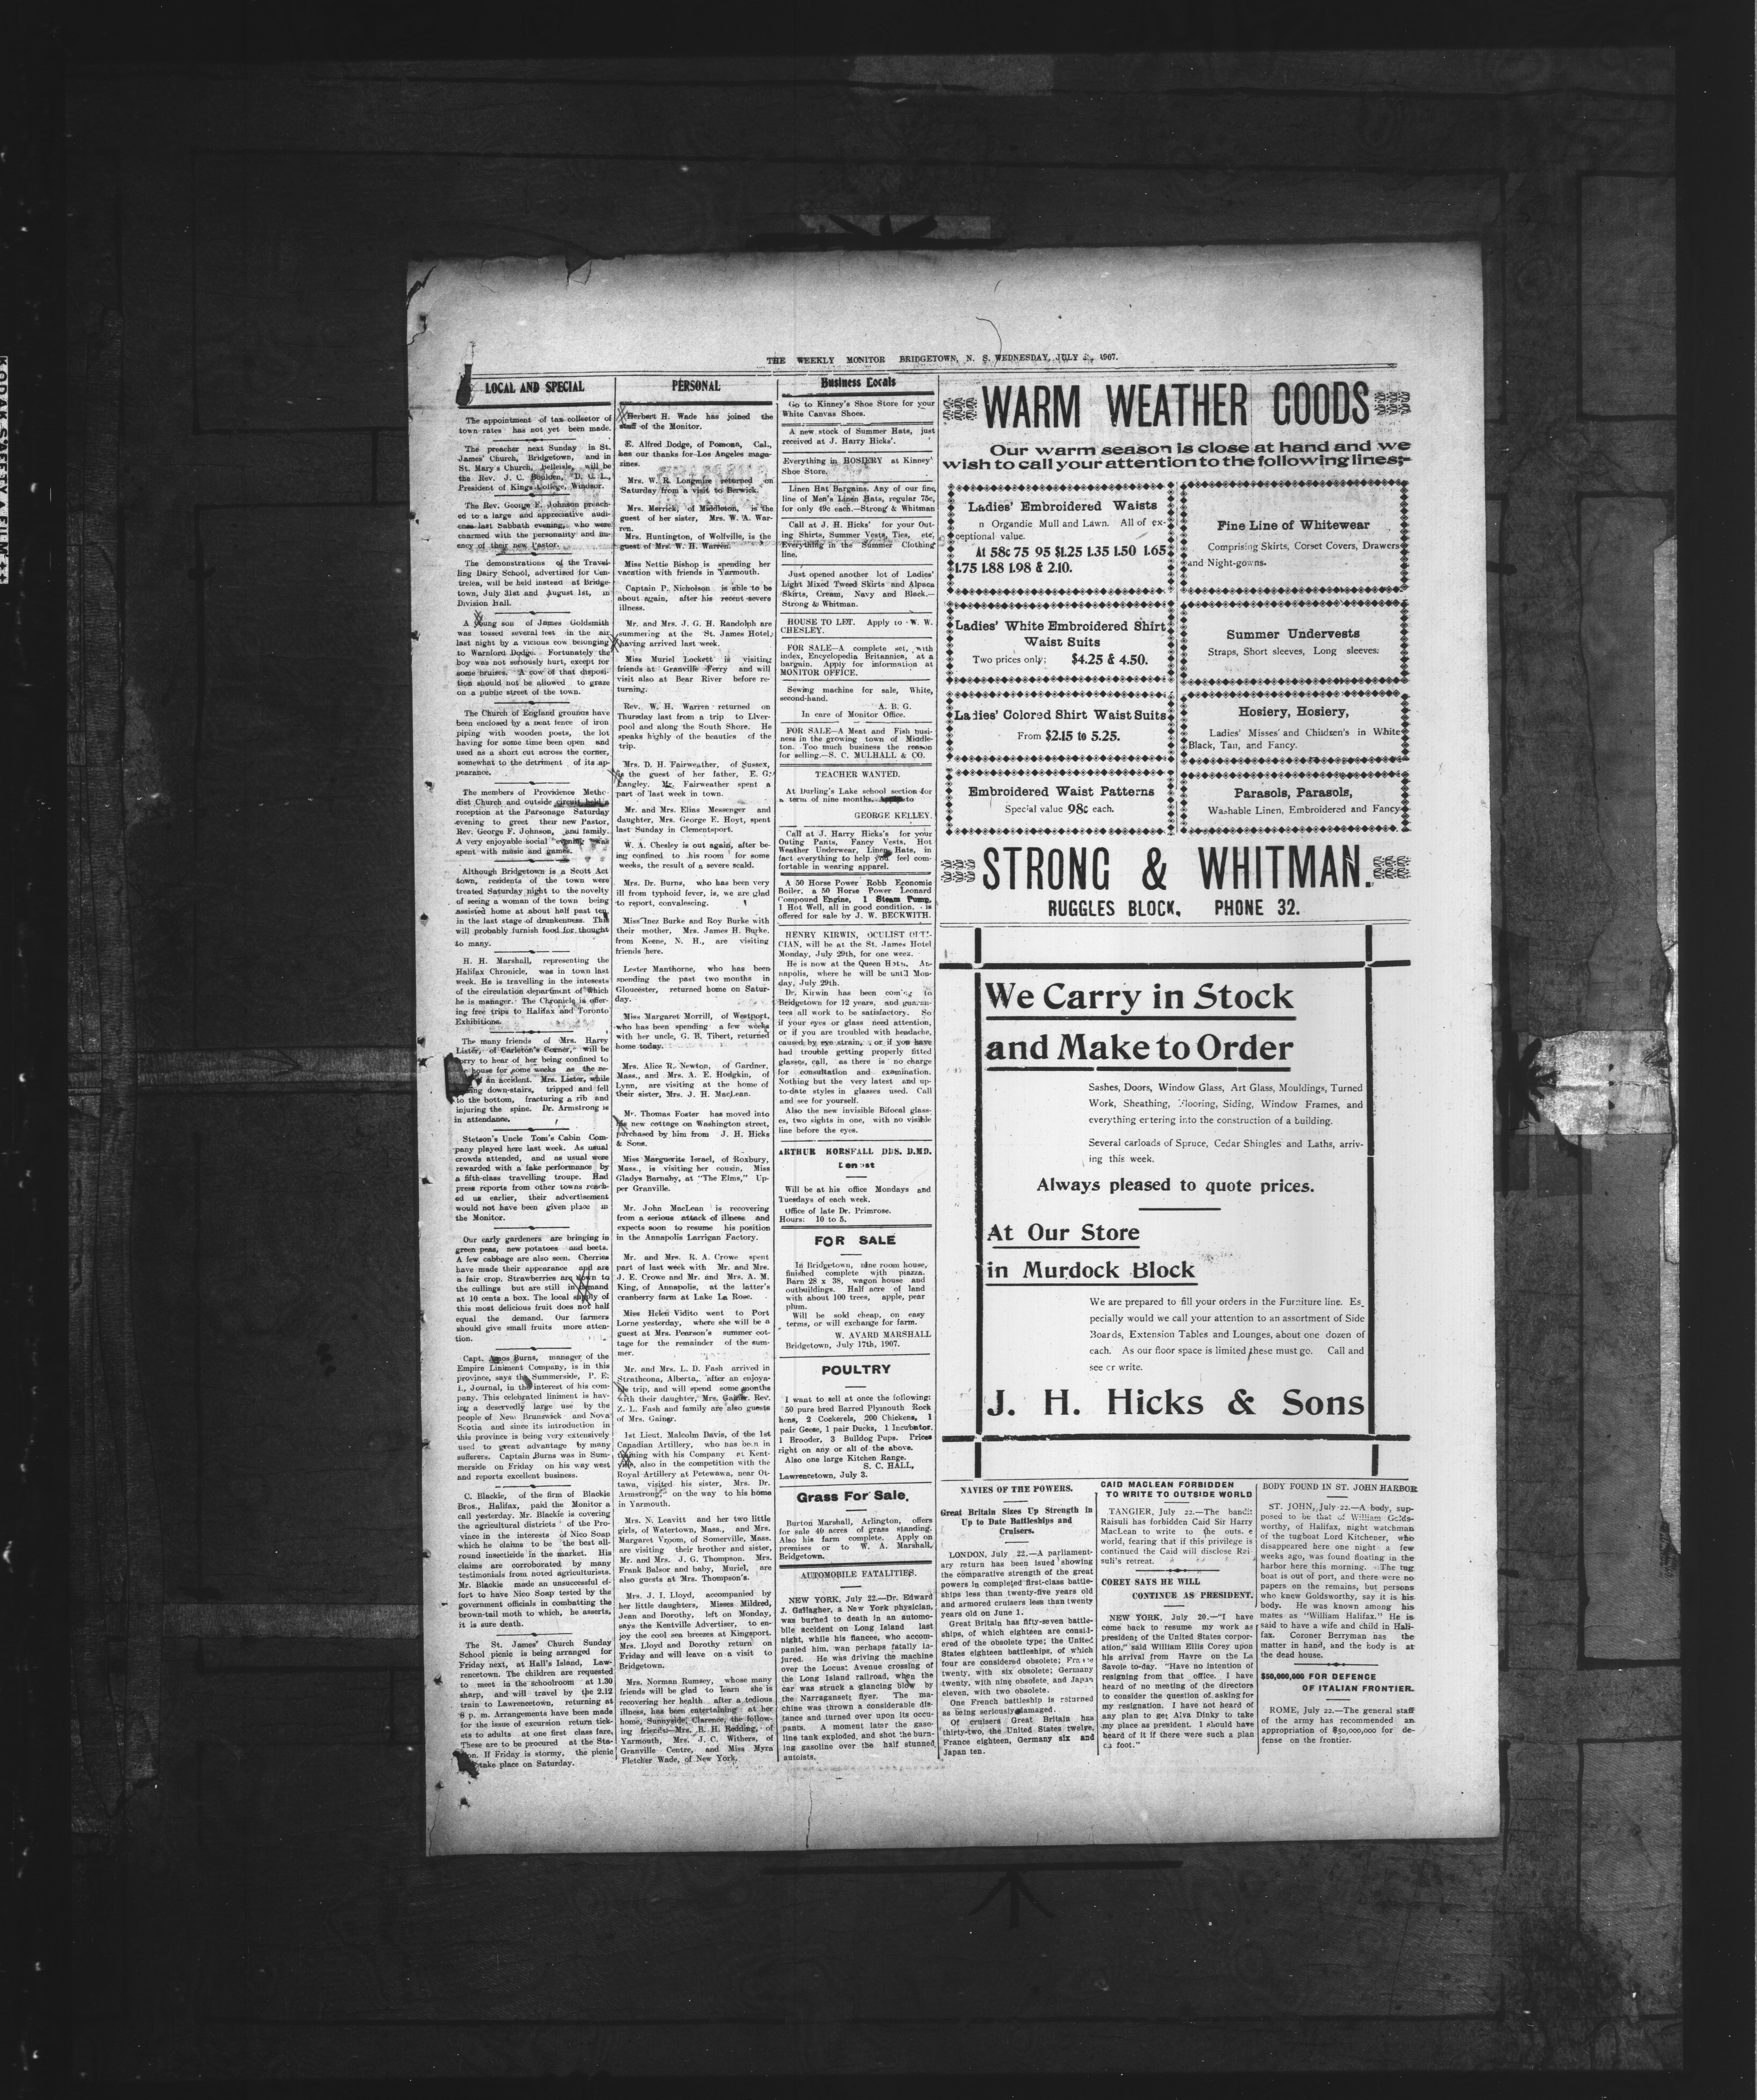 THE WEEKLY MONITOR BRIDGETOWN, N. S. WEDNESDAY, JULY 1907.
LOCAL AND SPECIAL
The appointment of tax collector of
town rates has not yet been made.
The preacher next Sunday in St.
James' Church, Bridgetown, and in
St. Mary's Church, Belleisle, will be
the Rev. J. C. Boulden, D. C. L.,
President of Kings College, Windsor.
The Rev. George F. Johnson preach-
ed to a large and appreciative audi-
ence last Sabbath evening, who were
charmed with the personality and flu-
ency of their new Pastor.
The demonstrations of the Travel-
ling Dairy School, advertised for Cen-
trelea, will be held instead at Bridge-
town, July 31st and August 1st, in
Division Hall.
A young son of James Goldsmith
was tossed several feet in the air
last night by a vicious cow belonging
to Warnford Dodge. Fortunately the
boy was not seriously hurt, except for
some bruises. A cow of that disposi-
tion should not be allowed to graze
on a public street of the town.
The Church of England grounds have
been enclosed by a neat fence of iron
piping with wooden posts, the lot
having for some time been open and
used as a short cut across the corner,
somewhat to the detriment of its ap-
pearance.
The members of Providence Metho-
dist Church and outside circuit held a
reception at the Parsonage Saturday
evening to greet their new Pastor,
Rev. George F. Johnson, and family.
A very enjoyable social evening was
spent with music and games.
Although Bridgetown is a Scott Act
town, residents of the town were
treated Saturday night to the novelty
of seeing a woman of the town being
assisted home at about half past ten
in the last stage of drunkenness. This
will probably furnish food for thought
to many.
H. H. Marshall, representing the
Halifax Chronicle, was in town last
week. He is travelling in the interests
of the circulation department of which
he is manager. The Chronicle is offer-
ing free trips to Halifax and Toronto
Exhibitions.
The many friends of Mrs. Harry
Lister, of Carleton's Corner, will be
sorry to hear of her being confined to
house for some weeks as the re-
an accident. Mrs. Lister, while
down-stairs, tripped and fell
to the bottom, fracturing a rib and
injuring the spine. Dr. Armstrong is
in attendance.
Stetson's Uncle Tom's Cabin Com-
pany played here last week. As usual
crowds attended, and as usual were
rewarded with a fake performance by
a fifth-class travelling troupe. Had
press reports from other towns reach-
ed us earlier, their advertisement
would not have been given place in
the Monitor.
Our early gardeners are bringing in
green peas, new potatoes and beets.
A few cabbage are also seen. Cherries
have made their appearance and are
a fair crop. Strawberries are down to
the cullings but are still in demand
at 10 cents a box. The local supply of
this most delicious fruit does not half
equal the demand. Our farmers
should give small fruits more atten-
tion.
Capt. Amos Burns, manager of the
Empire Liniment Company, is in this
province, says the Summerside, P. E.
I., Journal, in the interest of his com-
pany. This celebrated liniment is hav-
ing a deservedly large use by the
people of New Brunswick and Nova
Scotia and since its introduction in
this province is being very extensively
used to great advantage by many
sufferers. Captain Burns was in Sum-
merside on Friday on his way west
and reports excellent business.
C. Blackie, of the firm of Blackie
Bros., Halifax, paid the Monitor a
call yesterday. Mr. Blackie is covering
the agricultural districts of the Pro-
vince in the interests of Nico Soap
which he claims to be the best all-
round insecticide in the market. His
claims are corroborated by many
testimonials from noted agriculturists.
Mr. Blackie made an unsuccessful ef-
fort to have Nico Soap tested by the
government officials in combatting the
brown-tail moth to which, he asserts,
it is sure death.
The St. James' Church Sunday
School picnic is being arranged for
Friday next, at Hall's Island, Law-
rencetown. The children are requested
to meet in the schoolroom at 1.30
sharp, and will travel by the 2.12
train to Lawrencetown, returning at
8 p. m. Arrangements have been made
for the issue of excursion return tick-
ets to adults at one first class fare.
These are to be procured at the Sta-
tion. If Friday is stormy, the picnic
take place on Saturday.
PERSONAL
Herbert H. Wade has joined the
staff of the Monitor.
E. Alfred Dodge, of Pomona, Cal.,
has our thanks for Los Angeles maga-
zines.
Mrs. W. R. Longmire returned on
Saturday from a visit to Berwick.
Mrs. Merrick, of Middleton, is the
guest of her sister, Mrs. W. A. War-
ren.
Mrs. Huntington, of Wolfville, is the
guest of Mrs. W. H. Warren.
Miss Nettie Bishop is spending her
vacation with friends in Yarmouth.
Captain P. Nicholson is able to be
about again, after his recent severe
illness.
Mr. and Mrs. J. G. H. Randolph are
summering at the St. James Hotel,
having arrived last week.
Miss Muriel Lockett is visiting
friends at Granville Ferry and will
visit also at Bear River before re-
turning.
Rev. W. H. Warren returned on
Thursday last from a trip to Liver-
pool and along the South Shore. He
speaks highly of the beauties of the
trip.
Mrs. D. H. Fairweather, of Sussex,
is the guest of her father, E. G.
Langley. Mr. Fairweather spent a
part of last week in town.
Mr. and Mrs. Elias Messenger and
daughter, Mrs. George E. Hoyt, spent
last Sunday in Clementsport.
W. A. Chesley is out again, after be-
ing confined to his room for some
weeks, the result of a severe scald.
Mrs. Dr. Burns, who has been very
ill from typhoid fever, is, we are glad
to report, convalescing.
Miss Inez Burke and Roy Burke with
their mother, Mrs. James H. Burke,
from Keene, N. H., are visiting
friends here.
Lester Manthorne, who has been
spending the past two months in
Gloucester, returned home on Satur-
day.
Miss Margaret Morrill, of Westport,
who has been spending a few weeks
with her uncle, G. B. Tibert, returned
home today.
Mrs. Alice R. Newton, of Gardner,
Mass., and Mrs. A. E. Hodgkin, of
Lynn, are visiting at the home of
their sister, Mrs. J. H. MacLean.
Mr. Thomas Foster has moved into
his new cottage on Washington street,
purchased by him from J. H. Hicks
& Sons.
Miss Marguerite Israel, of Roxbury,
Mass., is visiting her cousin, Miss
Gladys Barnaby, at "The Elms," Up-
per Granville.
Mr. John MacLean is recovering
from a serious attack of illness and
expects soon to resume his position
in the Annapolis Larrigan Factory.
Mr. and Mrs. R. A. Crowe spent
part of last week with Mr. and Mrs.
J. E. Crowe and Mr. and Mrs. A. M.
King, of Annapolis, at the latter's
cranberry farm at Lake La Rose.
Miss Helen Vidito went to Port
Lorne yesterday, where she will be a
guest at Mrs. Pearson's summer cot-
tage for the remainder of the sum-
mer.
Mr. and Mrs. L. D. Fash arrived in
Strathcona, Alberta, after an enjoya-
ble trip, and will spend some months
with their daughter, Mrs. Gainer. Rev.
Z. L. Fash and family are also guests
of Mrs. Gainer.
1st Lieut. Malcolm Davis, of the 1st
Canadian Artillery, who has been in
training with his Company at Kent-
ville, also in the competition with the
Royal Artillery at Petewawa, near Ot-
tawa, visited his sister, Mrs. Dr.
Armstrong, on the way to his home
in Yarmouth.
Mrs. N. Leavitt and her two little
girls, of Watertown, Mass., and Mrs.
Margaret Vroom, of Somerville, Mass.
are visiting their brother and sister,
Mr. and Mrs. J. G. Thompson. Mrs.
Frank Balsor and baby, Muriel, are
also guests at Mrs. Thompson's.
Mrs. J. I. Lloyd, accompanied by
her little daughters, Misses Mildred,
Jean and Dorothy, left on Monday,
says the Kentville Advertiser, to en-
joy the cool sea breezes at Kingsport.
Mrs. Lloyd and Dorothy return on
Friday and will leave on a visit to
Bridgetown.
Mrs. Norman Rumsey, whose many
friends will be glad to learn she is
recovering her health after a tedious
illness, has been entertaining at her
home, Sunnyside, Clarence, the follow-
ing friends—Mrs. B. H. Redding, of
Yarmouth, Mrs. J. C. Withers, of
Granville Centre, and Miss Myra
Fletcher Wade, of New York.
Business Locals
Go to Kinney's Shoe Store for your
White Canvas Shoes.
A new stock of Summer Hats, just
received at J. Harry Hicks'.
Everything in HOSIERY at Kinney'
Shoe Store.
Linen Hat Bargains. Any of our fine
line of Men's Linen Hats, regular 75c,
for only 49c each.—Strong & Whitman
Call at J. H. Hicks' for your Out-
ing Shirts, Summer Vests, Ties, etc,
Everything in the Summer Clothing
line.
Just opened another lot of Ladies'
Light Mixed Tweed Skirts and Alpaca
Skirts, Cream, Navy and Black.—
Strong & Whitman.
HOUSE TO LET. Apply to W. W.
CHESLEY.
FOR SALE—A complete set, with
index, Encyclopedia Britannica, at a
bargain. Apply for information at
MONITOR OFFICE.
Sewing machine for sale, White,
second-hand.
A. B. G.
In care of Monitor Office.
FOR SALE—A Meat and Fish busi-
ness in the growing town of Middle-
ton. Too much business the reason
for selling.—S. C. MULHALL & CO.
TEACHER WANTED.
At Durling's Lake school section for
a term of nine months. to
GEORGE KELLEY.
Call at J. Harry Hicks's for your
Outing Pants, Fancy Vests, Hot
Weather Underwear, Linen Hats, in
fact everything to help you feel com-
fortable in wearing apparel.
A 50 Horse Power Robb Economic
Boiler, a 50 Horse Power Leonard
Compound Engine, 1 Steam Pump,
1 Hot Well, all in good condition, is
offered for sale by J. W. BECKWITH.
HENRY KIRWIN, OCULIST OPTI-
CIAN, will be at the St. James Hotel
Monday, July 29th, for one week.
He is now at the Queen Hotel, An-
napolis, where he will be until Mon-
day, July 29th.
Dr. Kirwin has been coming to
Bridgetown for 12 years, and guaran-
tees all work to be satisfactory. So
if your eyes or glass need attention,
or if you are troubled with headache,
caused by eye strain, or if you have
had trouble getting properly fitted
glasses, call, as there is no charge
for consultation and examination.
Nothing but the very latest and up-
to-date styles in glasses used. Call
and see for yourself.
Also the new invisible Bifocal glass-
es, two sights in one, with no visible
line before the eyes.
ARTHUR HORSFALL DDS. D.MD.
Dentist
Will be at his office Mondays and
Tuesdays of each week.
Office of late Dr. Primrose.
Hours: 10 to 5.
FOR SALE
In Bridgetown, nine room house,
finished complete with piazza.
Barn 28 x 38, wagon house and
outbuildings. Half acre of land
with about 100 trees, apple, pear
plum.
Will be sold cheap, on easy
terms, or will exchange for farm.
W. AVARD MARSHALL
Bridgetown, July 17th, 1907.
POULTRY
I want to sell at once the following:
50 pure bred Barred Plymouth Rock
hens, 2 Cockerels, 200 Chickens, 1
pair Geese, 1 pair Ducks, 1 Incubator,
1 Brooder, 3 Bulldog Pups. Prices
right on any or all of the above.
Also one large Kitchen Range.
S. C. HALL,
Lawrencetown, July 3.
Grass For Sale.
Burton Marshall, Arlington, offers
for sale 40 acres of grass standing.
Also his farm complete. Apply on
premises or to W. A. Marshall,
Bridgetown.
AUTOMOBILE FATALITIES.
NEW YORK, July 22.—Dr. Edward
J. Gallagher, a New York physician,
was burned to death in an automo-
bile accident on Long Island last
night, while his fiancee, who accom-
panied him, was perhaps fatally in-
jured. He was driving the machine
over the Locust Avenue crossing of
the Long Island railroad, when the
car was struck a glancing blow by
the Narragansett flyer. The ma-
chine was thrown a considerable dis-
tance and turned over upon its occu-
pants. A moment later the gaso-
line tank exploded, and shot the burn-
ing gasoline over the half stunned
autoists.
WARM WEATHER GOODS
Our warm season is close at hand and we
wish to call your attention to the following lines;-
Ladies' Embroidered Waists
n Organdie Mull and Lawn. All of ex-
ceptional value.
At 58c 75 95 $1.25 1.35 1.50 1.65
1.75 1.88 1.98 & 2.10.
Fine Line of Whitewear
Comprising Skirts, Corset Covers, Drawers
and Night-gowns.
Ladies' White Embroidered Shirt
Waist Suits
Two prices only; $4.25 & 4.50.
Summer Undervests
Straps, Short sleeves, Long sleeves.
Ladies' Colored Shirt Waist Suits
From $2.15 to 5.25.
Hosiery, Hosiery,
Ladies' Misses' and Children's in White
Black, Tan, and Fancy.
Embroidered Waist Patterns
Special value 98c each.
Parasols, Parasols,
Washable Linen, Embroidered and Fancy
STRONG & WHITMAN.
RUGGLES BLOCK, PHONE 32.
We Carry in Stock
and Make to Order
Sashes, Doors, Window Glass, Art Glass, Mouldings, Turned
Work, Sheathing, Flooring, Siding, Window Frames, and
everything entering into the construction of a building.
Several carloads of Spruce, Cedar Shingles and Laths, arriv-
ing this week.
Always pleased to quote prices.
At Our Store
in Murdock Block
We are prepared to fill your orders in the Furniture line. Es-
pecially would we call your attention to an assortment of Side
Boards, Extension Tables and Lounges, about one dozen of
each. As our floor space is limited these must go. Call and
see or write.
J. H. Hicks & Sons
NAVIES OF THE POWERS.
Great Britain Sizes Up Strength in
Up to Date Battleships and
Cruisers.
LONDON, July 22.—A parliament-
ary return has been isued showing
the comparative strength of the great
powers in completed first-class battle-
ships less than twenty-five years old
and armored cruisers less than twenty
years old on June 1.
Great Britain has fifty-seven battle-
ships, of which eighteen are consid-
ered of the obsolete type; the United
States eighteen battleships, of which
four are considered obsolete; France
twenty, with six obsolete; Germany
twenty, with nine obsolete, and Japan
eleven, with two obsolete.
One French battleship is returned
as being seriously damaged.
Of cruisers Great Britain has
thirty-two, the United States twelve,
France eighteen, Germany six and
Japan ten.
CAID MACLEAN FORBIDDEN
TO WRITE TO OUTSIDE WORLD
TANGIER, July 22.—The bandit
Raisuli has forbidden Caid Sir Harry
MacLean to write to the outside
world, fearing that if this privilege is
continued the Caid will disclose Rai-
suli's retreat.
COREY SAYS HE WILL
CONTINUE AS PRESIDENT.
NEW YORK, July 20.—"I have
come back to resume my work as
president of the United States corpor-
ation," said William Ellis Corey upon
his arrival from Havre on the La
Savoie to-day. "Have no intention of
resigning from that office. I have
heard of no meeting of the directors
to consider the question of asking for
my resignation. I have not heard of
any plan to get Alva Dinky to take
my place as president. I should have
heard of it if there were such a plan
on foot."
BODY FOUND IN ST. JOHN HARBOR
ST. JOHN, July 22.—A body, sup-
posed to be that of William Golds-
worthy, of Halifax, night watchman
of the tugboat Lord Kitchener, who
disappeared here one night a few
weeks ago, was found floating in the
harbor here this morning. The tug
boat is out of port, and there were no
papers on the remains, but persons
who knew Goldsworthy, say it is his
body. He was known among his
mates as "William Halifax." He is
said to have a wife and child in Hali-
fax. Coroner Berryman has the
matter in hand, and the body is at
the dead house.
$50,000,000 FOR DEFENCE
OF ITALIAN FRONTIER.
ROME, July 22.—The general staff
of the army has recommended an
appropriation of $50,000,000 for de-
fense on the frontier.